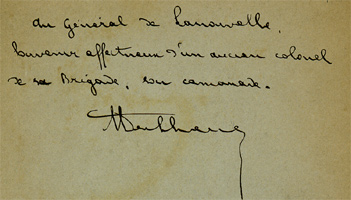 Au Général de Lanouvelle,
Souvenir affectueux d'un ancien colonel
de sa Brigade, son camarade.